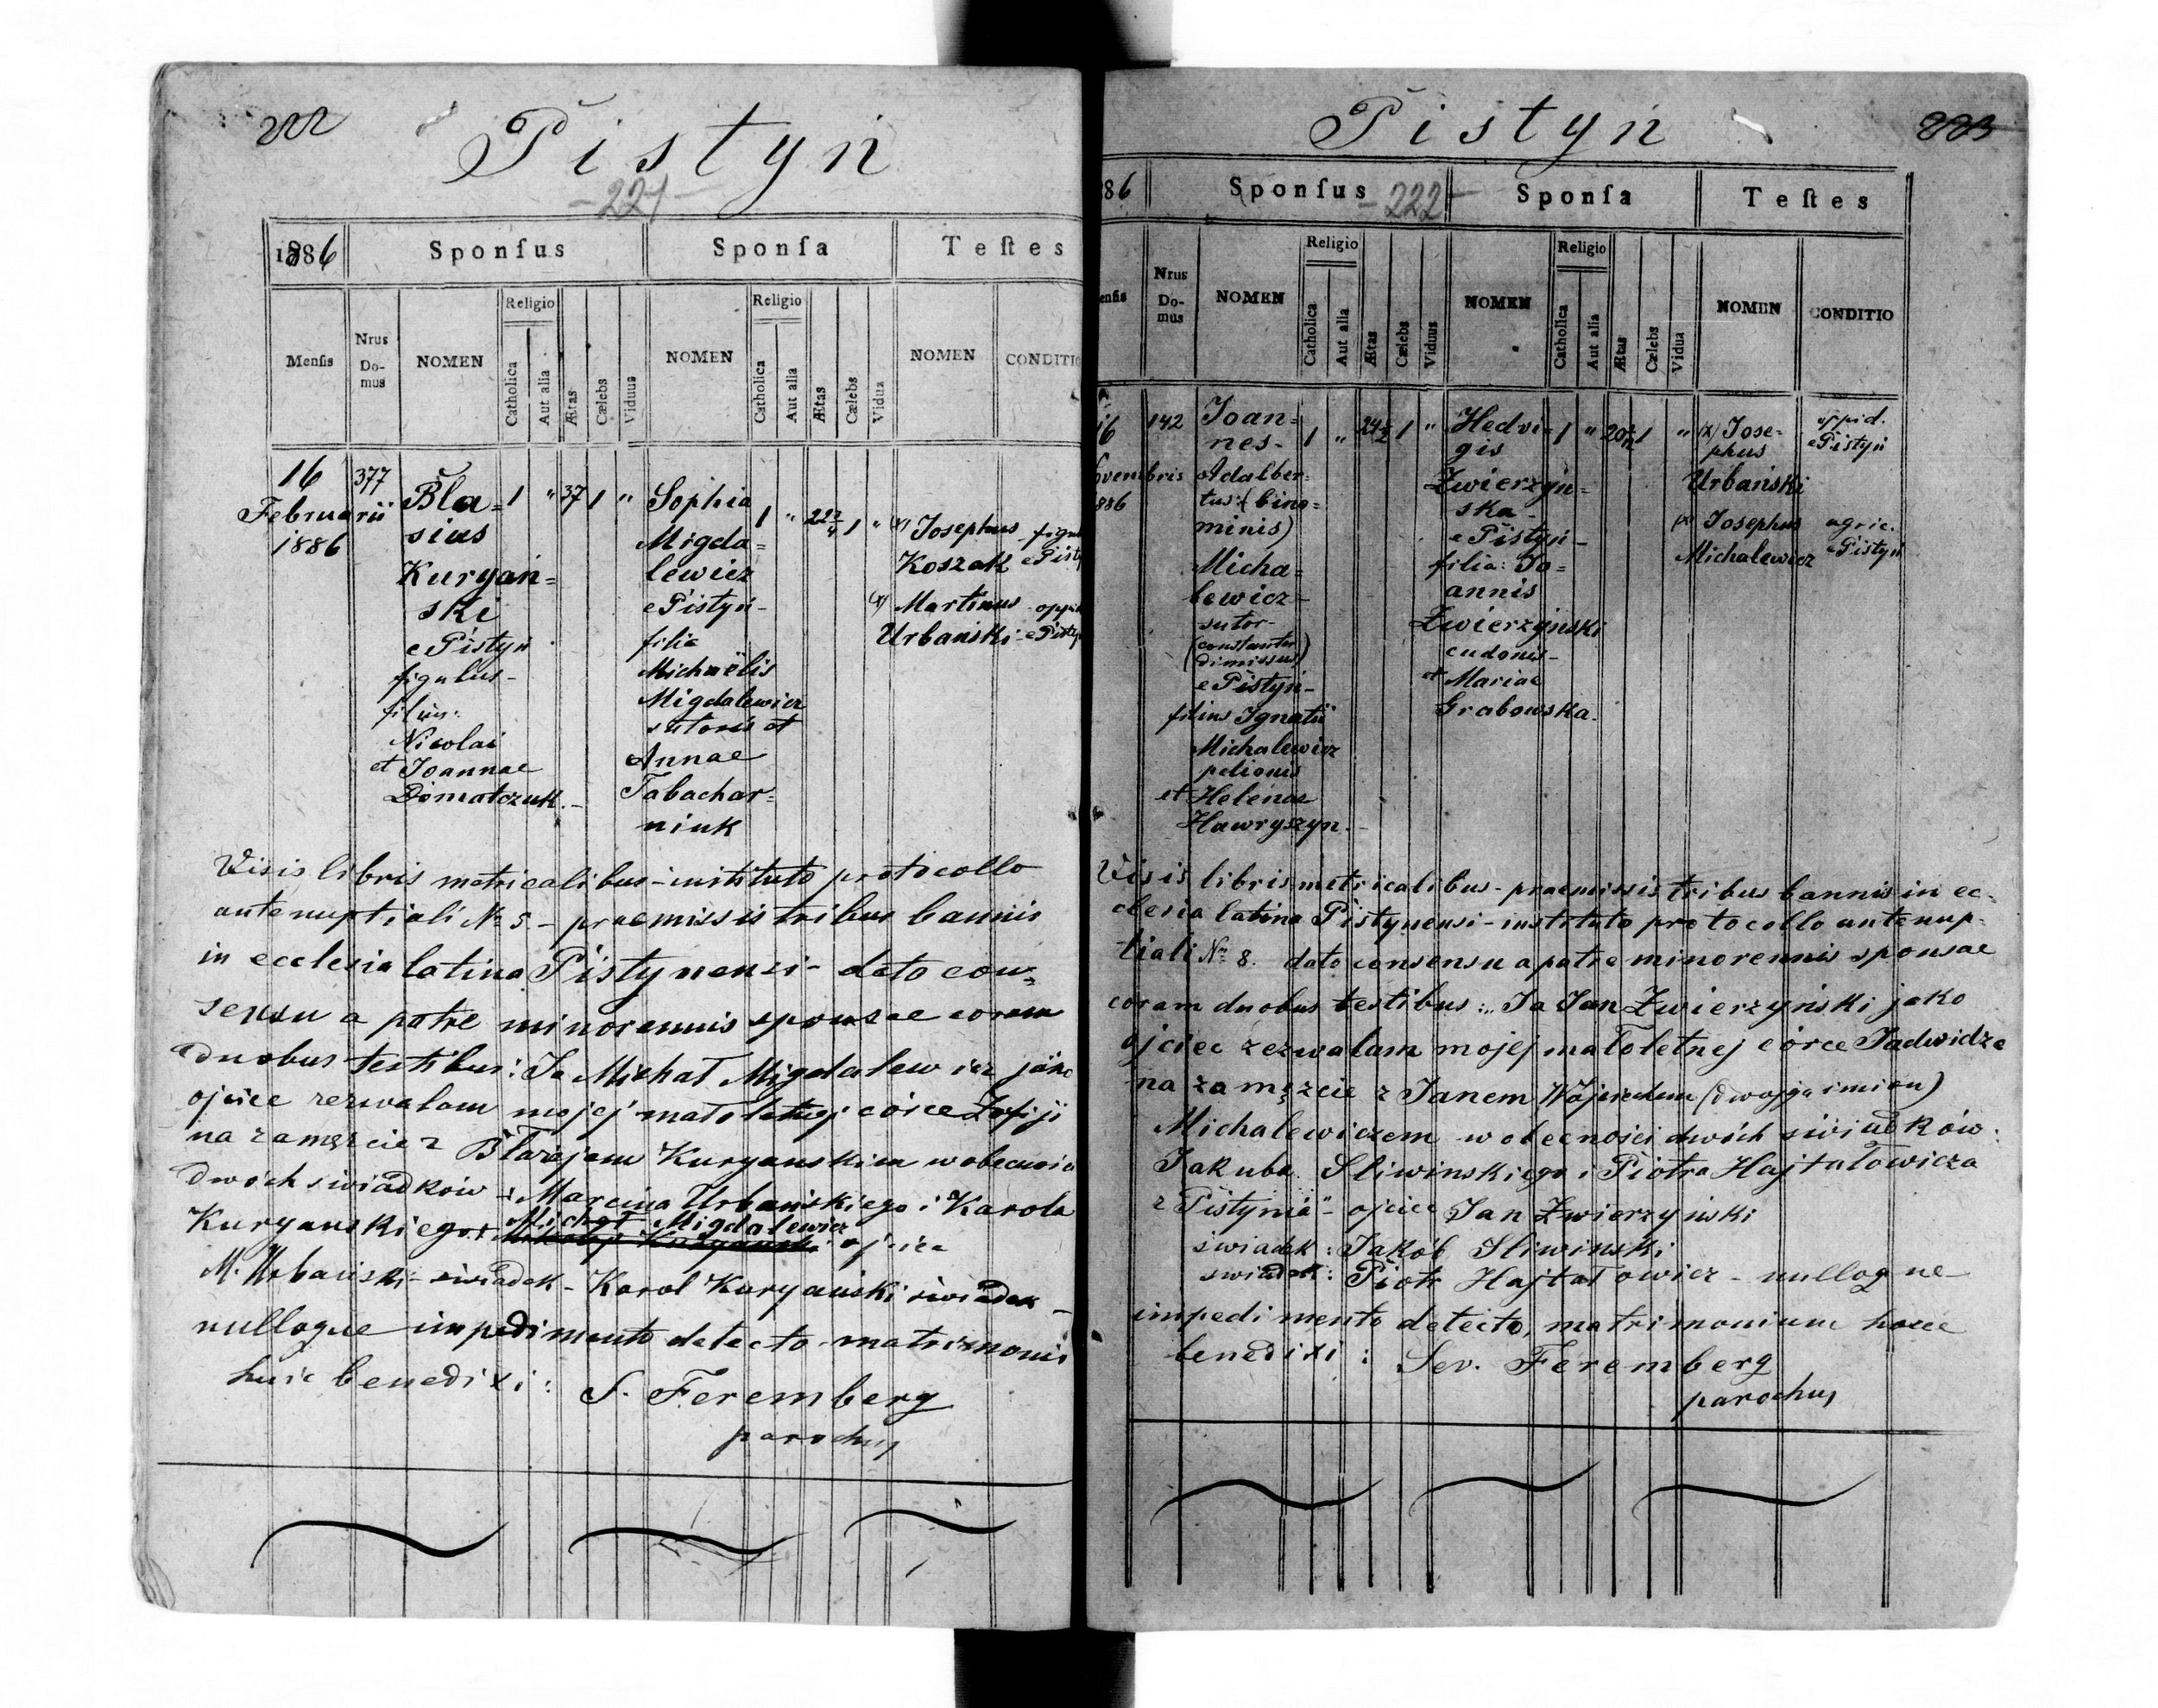 222
Pistyń
-221-
1886
Sponſus
Sponſa
Teſtes
Menſis
Nrus Do-mus
NOMEN
Religio
Catholica
Aut alia
Ætas
Cælebs
Viduus
NOMEN
Religio
Catholica
Aut alia
Ætas
Cælebs
Vidua
NOMEN
CONDITIO
16
Februarii
1886
377
Bla=
sius
Kuryań=
ski
e Pistyń
figulus-
filius:
Nicolai
et Joannae
Dómatczuk.-
1 " 37 1 "
Sophia
Migda=
lewicz
e Pistyń-
filia
Michaëlis
Migdalewicz
sutoris et
Annae
Tabachar=
niuk
1 " 1 "
(x) Josephus
Koszak e Pisty
(x) Martinus
Urbański e Pisty
Visis libris metricalibus - instituto protocollo
antenuptiali № 5 - praemissis tribus bannis
in ecclesia latina Pistynensi - dato con=
sensu a patre minorennis sponsae coram
duobus testibus: Ja Michał Migdalewicz jako
ojciec zezwalam mojej małoletniej córce Zofiji
na zamęzcie z Błażejem Kuryanskim w obecności
dwóch świadków: Marcina Urbańskiego i Karola
Kuryanskiego: Michał Migdalewicz
ojciec
M. Urbański - świadek - Karol Kuryański świadek -
nulloque impedimento detecto matrimonio
huic benedixi: S. Feremberg
parochus
Pistyń
223
-222-
86
Sponſus
Sponſa
Teſtes
enſis
Nrus Do-mus
NOMEN
Religio
Catholica
Aut alia
Ætas
Cælebs
Viduus
NOMEN
Religio
Catholica
Aut alia
Ætas
Cælebs
Vidua
NOMEN
CONDITIO
16
ovembris
886
142
Joan=
nes-
Adalber=
tus (bino=
minis)
Micha=
lewicz-
sutor-
(constanter
dimissus)
e Pistyń-
filius Ignatii
Michalewicz
pelionis
et Helenae
Hawryszyn.-
1 " 1 "
Hedvi=
gis
Zwierzyń=
ska-
e Pistyń-
filia: Jo=
annis
Zwierzyński
cudonis-
et Mariae
Grabowska.
1 " 1 "
(x) Jose-
phus
Urbański
oppid.
e Pistyń
(x) Josephus
Michalewicz
agric.
e Pistyń
Visis libris metricalibus - praemissis tribus bannis in ec-
clesia latina Pistynensi - instituto protocollo antenup-
tiali № 8. dato consensu a patre minorennis sponsae
coram duobus testibus: „Ja Jan Zwierzyński jako
ojciec zezwalam mojej małoletnej córce Jadwidze
na zamęzcie z Janem Wojciechem (dwojga imion)
Michalewiczem w obecności dwóch świadków:
Jakuba Sliwinskiego i Piotra Hajtałowicza
z Pistynia" - ojciec Jan Zwierzyński
świadek: Jakób Sliwinski
świadek: Piotr Hajtałowicz - nulloque
impedimento detecto, matrimonium hocce
benedixi: Sev. Feremberg
parochus